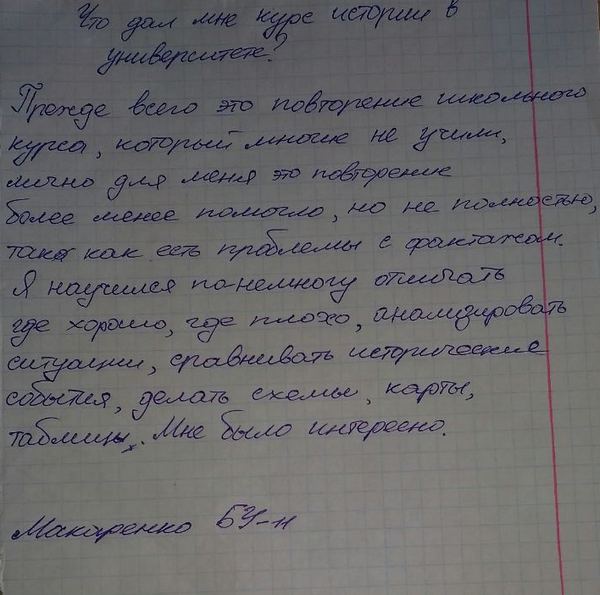 Что дал мне курс истории в
университете?
Прежде всего это повторение школьного
курса, который многие не учили,
лично для меня это повторение
более менее помогло, но не полностью,
так как есть проблемы с фактажом.
Я научился по-немногу отличать
где хорошо, где плохо, анализировать
ситуации, сравнивать исторические
события, делать схемы, карты,
таблицы. Мне было интересно.
Макаренко БУ-11